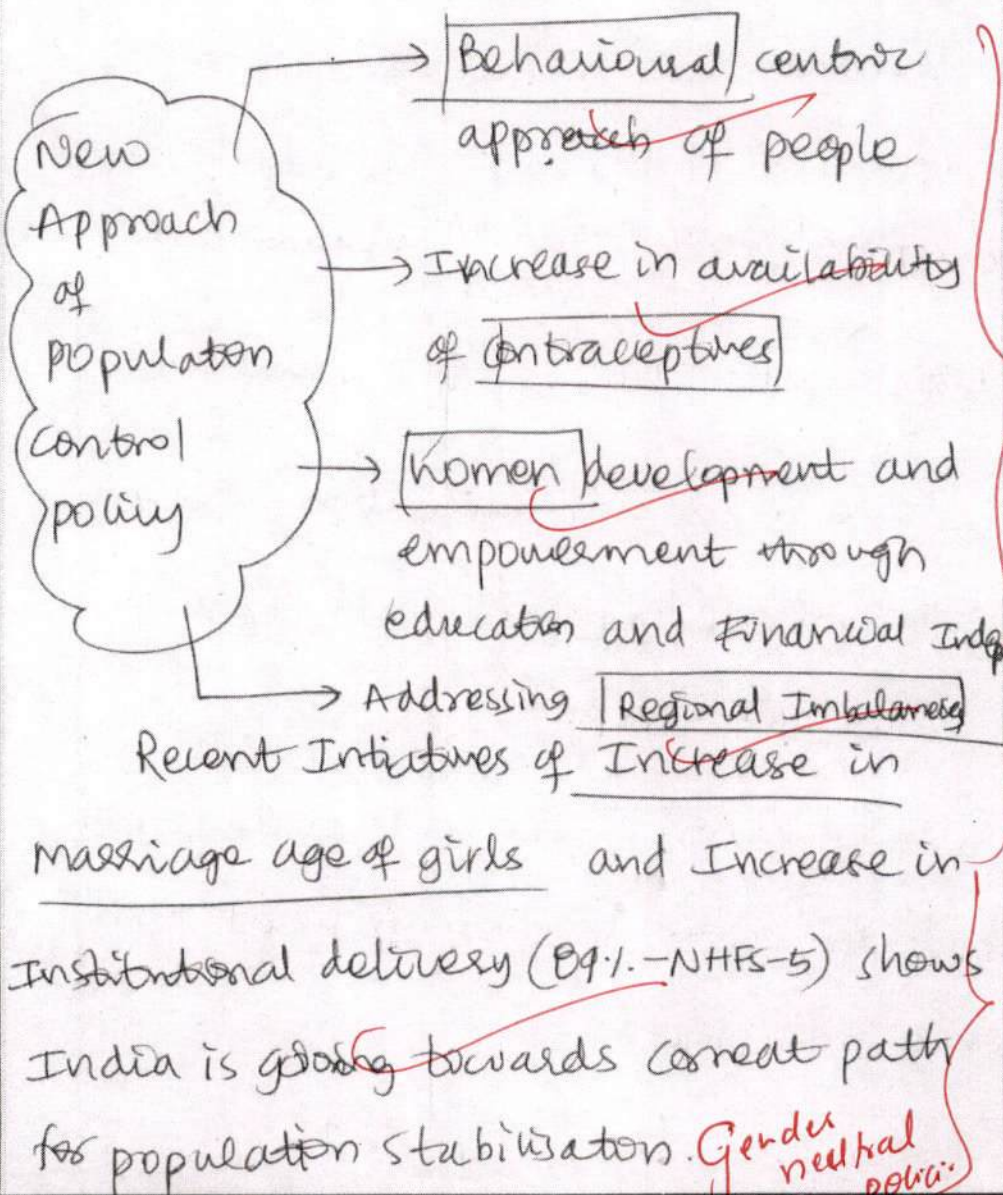 New
Approach
of
populaton
control
policy
→ Behavioural centric
approach of people
→ Increase in availability
of contraceptives
→ Women development and
empowerment through
education and Financial Indp
→ Addressing Regional Imbalances
Recent Intiatives of Increase in
marriage age of girls and Increase in
Institutional delivery (89%-NHFS-5) shows
India is going towards correat path
for population stabilisaton.
Gender
neutral